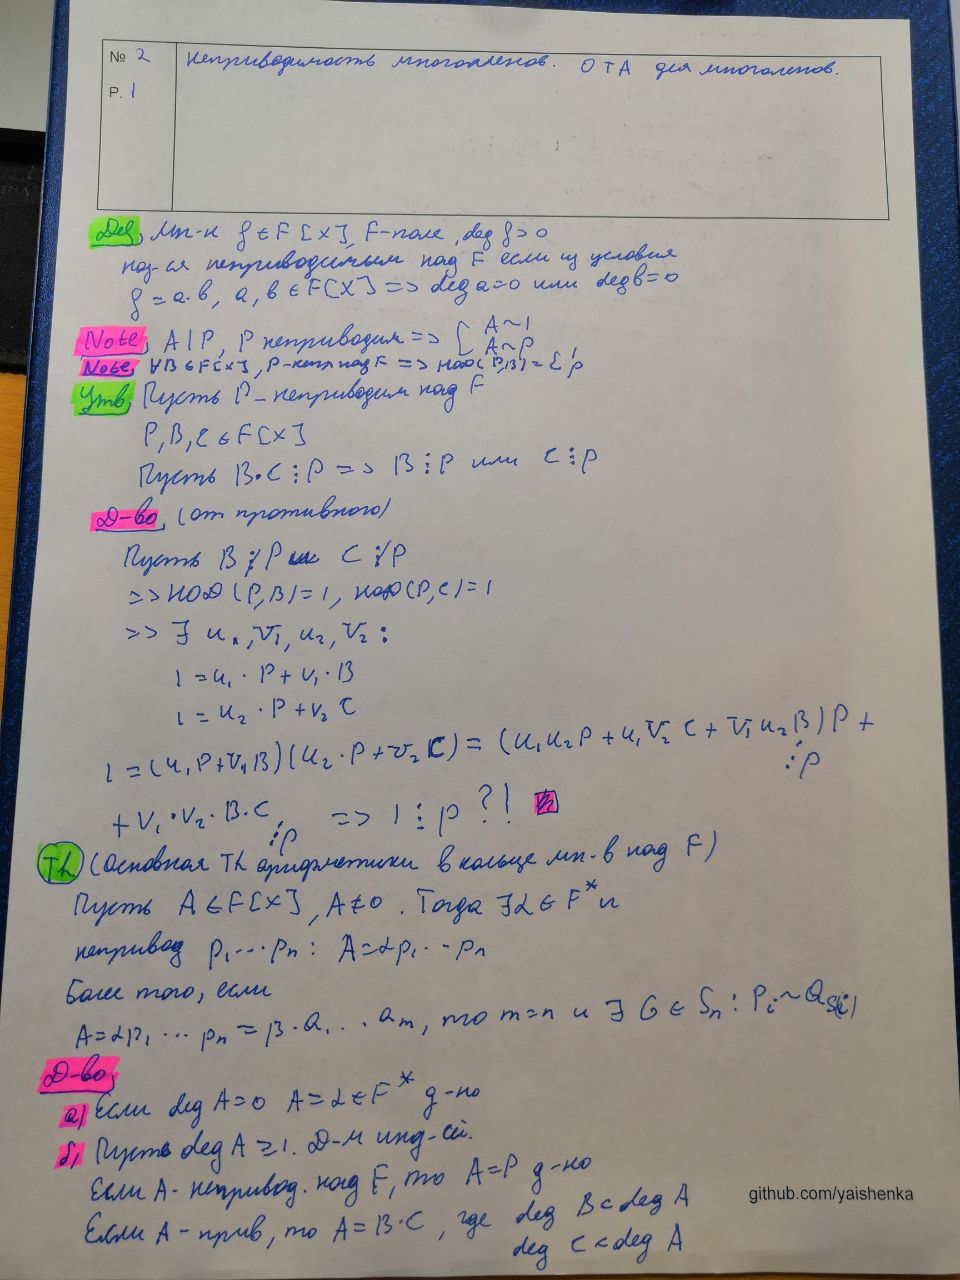 № 2 Неприводимость многочленов. ОТА для многочленов.
Р. 1
Def, Мн-н f ∈ F[x], F-поле, deg f > 0
наз-ся неприводимым над F если из условия
f = a·b, a, b ∈ F[x] => deg a=0 или deg b=0
Note, A|P, P неприводим => [ A~1
A~P
Note, ∀B ∈ F[x], P-непр над F => НОД(P,B) = { 1, p
Утв, Пусть P - неприводим над F
P, B, C ∈ F[x]
Пусть B·C ⋮ P => B ⋮ P или C ⋮ p
Д-во, (от противного)
Пусть B ⋮̸ P и C ⋮̸ P
=> НОД (P,B)=1, НОД(P,C)=1
=> ∃ u₁, v₁, u₂, v₂ :
1 = u₁ · P + v₁ · B
1 = u₂ · P + v₂ C
1 = (u₁P+v₁B)(u₂·P+v₂C) = (u₁u₂P + u₁v₂C + v₁u₂B)P +
⋮p
+ v₁·v₂·B·C => 1 ⋮ p ?!
⋮p
Th (Основная Th арифметики в кольце мн-в над F)
Пусть A ∈ F[x], A≠0. Тогда ∃α ∈ F* и
непривод p₁...pₙ : A=αp₁...pₙ
Более того, если
A=αp₁...pₙ = β·a₁...aₘ, то m=n и ∃ G ∈ Sₙ : Pᵢ~Q
Д-во,
а) Если deg A=0 A=α∈F* д-но
б) Пусть deg A ≥1. Д-м инд-ей.
Если A - непривод. над F, то A=P д-но
Если A - прив, то A=B·C, где deg B<deg A
deg C<deg A
github.com/yaishenka